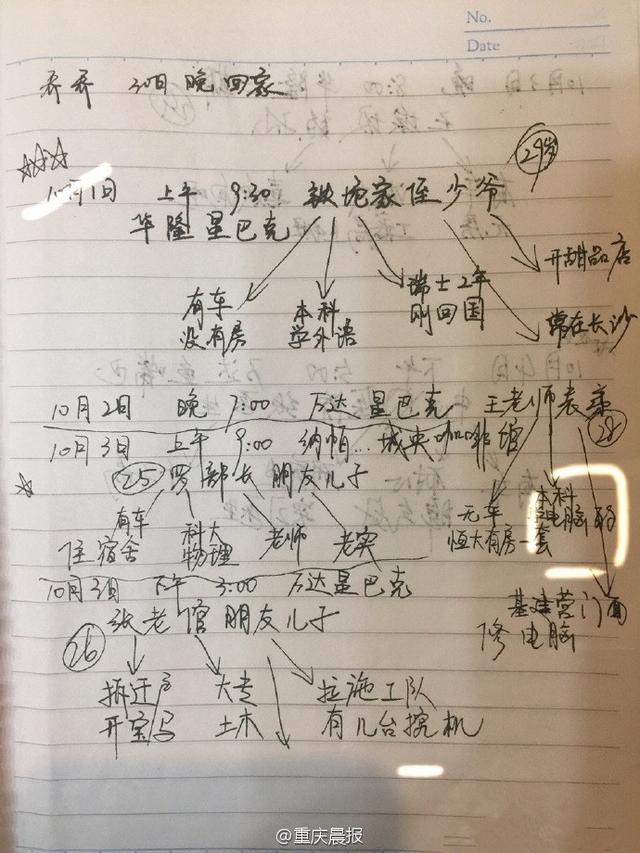 No.
Date
乔乔 30日 晚 回家
10月1日 上午 9:30 铁坨家侄少爷 29岁
华隆星巴克
开甜品店
有车 没有房
本科 学外语
瑞士2年 刚回国
常在长沙
10月2日 晚 7:00 万达星巴克 王老师表弟 28
10月3日 上午 9:00 纳帕...城央咖啡馆
25 罗部长 朋友儿子
有车 住宿舍
科大 物理
老师
老实
无车 恒大有房一套
本科 电脑
基建营门面 修电脑
10月3日 下午 3:00 万达星巴克
张老馆朋友儿子
26
拆迁户 开宝马
大专 土木
拉施工队 有几台挖机
@重庆晨报